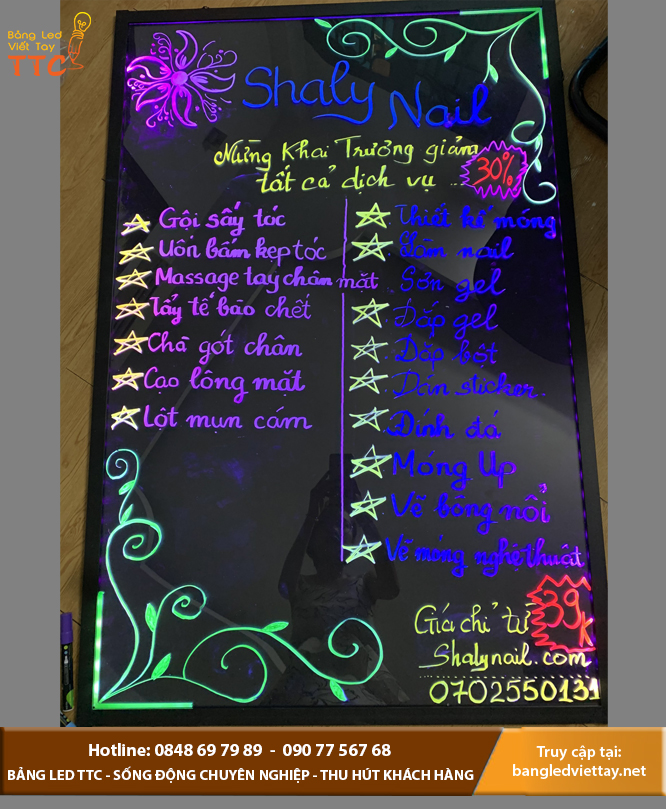 Bảng Led
Viết Tay
TTC
Shaly Nail
Mừng Khai Trương giảm
30%
tất cả dịch vụ ...
Gội sấy tóc
Uốn bấm kẹp tóc
Massage tay chân mặt
Tẩy tế bào chết
Chà gót chân
Cạo lông mặt
Lột mụn cám
Thiết kế móng
Dặm nail
Sơn gel
Đắp gel
Đắp bột
Dán sticker
Đính đá
Móng Up
Vẽ bông nổi
Vẽ móng nghệ thuật
Giá chỉ từ
39K
Shalynail.com
0702550131
Hotline: 0848 69 79 89 - 090 77 567 68
BẢNG LED TTC - SỐNG ĐỘNG CHUYÊN NGHIỆP - THU HÚT KHÁCH HÀNG
Truy cập tại:
bangledviettay.net